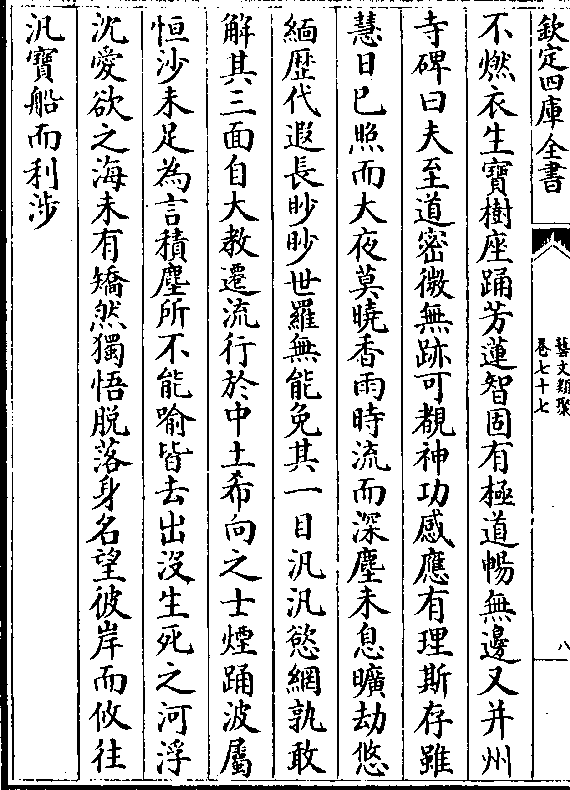 欽定四庫全書
藝文類聚
卷七十七
八
不燃衣生寶樹座踊芳蓮智固有極道暢無邊又并州
寺碑曰夫至道密微無跡可覩神功感應有理斯存雖
慧日已照而大夜莫曉香雨時流而深塵未息曠劫悠
緬歴代遐長眇眇世羅無能免其一目汎汎慾網孰敢
解其三面自大教遷流行於中土希向之士煙踊波屬
恒沙未足為言積塵所不能喻皆去出沒生死之河浮
沈愛欲之海未有矯然獨悟脱落身名望彼岸而攸往
汎寶船而利涉